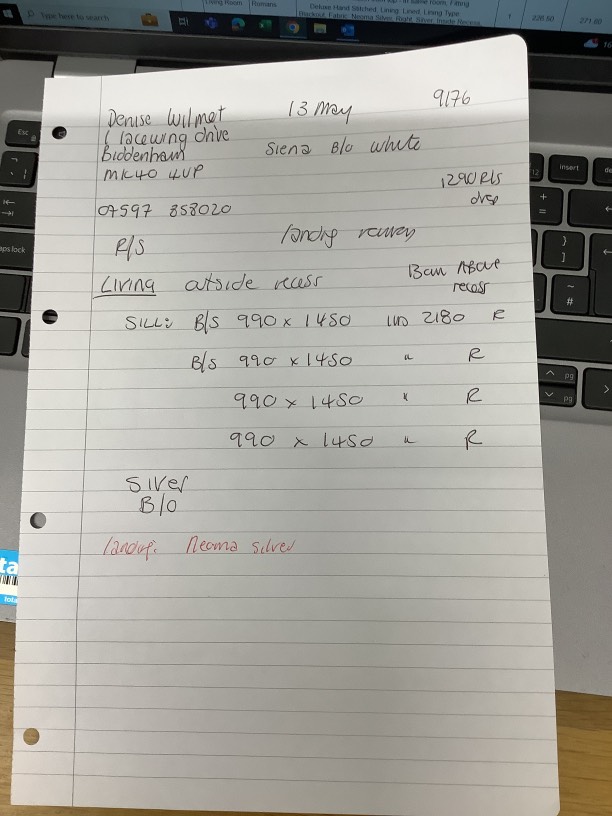 Type here to search
Living Room Romans
Deluxe Hand Stitched, Lining: Lined, Lining Type:
Blackout, Fabric: Neoma Silver, Right, Silver, Inside Recess
1 226.50 271.80
Denise Wilmot 13 May 9176
1 lacewing drive
Biddenham Siena B/o white
MK40 4UP
1290 R/s
drop
07597 858020
R/S landing
Living outside recess 13cm Above
recess
SILL: B/S 990 x 1450 2180 R
B/S 990 x 1450 " R
990 x 1450 " R
990 x 1450 " R
Silver
B/O
landing: Neoma silver
Esc
caps lock
insert
+
=
}
]
~
#
pg
pg
ta
tota